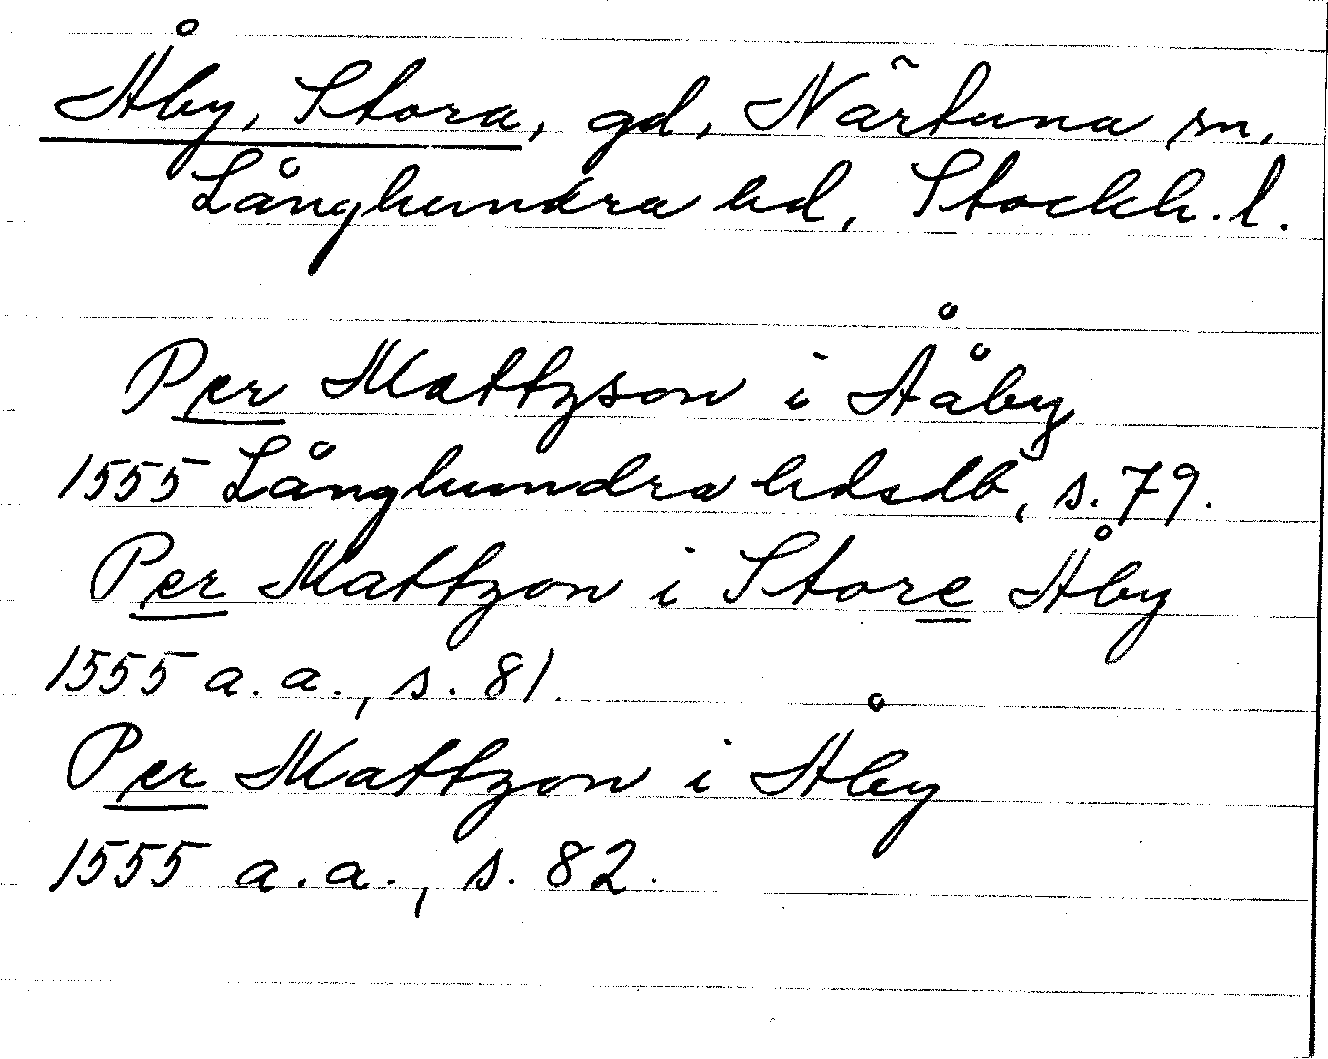 Åby, Stora, gd, Närtuna sn,
Långhundra hd, Stockh. l.
Per Mattzson i Ååby
1555 Långhundra hdsdb, s. 79.
Per Mattzon i Store Åby
1555 a.a., s. 81.
Per Mattzon i Åby
1555 a.a., s. 82.